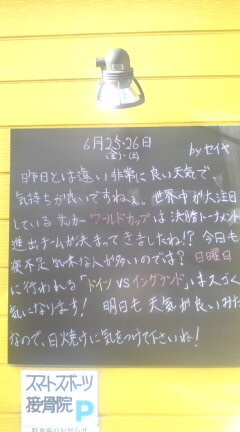 6月25・26日
(金)・(土)
by セイヤ
昨日とは違い非常に良い天気で、
気持ちが良いですねぇ。世界中が大注目
しているサッカーワールドカップは決勝トーナメント
進出チームが決まってきましたね!?今日も
寝不足気味な人が多いのでは?日曜日
に行われる「ドイツ VS イングランド」はスゴく
気になります!明日も天気が良いみた
なので、日焼けに気をつけて下さいね!
スマートスポーツ
接骨院 P
駐車場のお知らせ